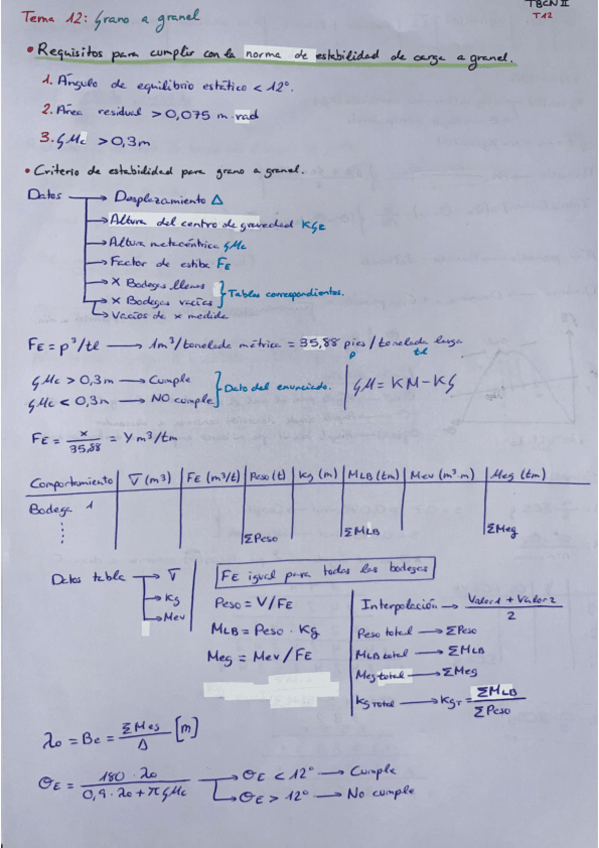 TBCN II
T12
Tema 12: Grano a granel
• Requisitos para cumplir con la norma de estabilidad de carga a granel.
1. Ángulo de equilibrio estático < 12º.
2. Área residual > 0,075 m·rad
3. GMc > 0,3m
• Criterio de estabilidad para grano a granel.
Datos → Desplazamiento Δ
→ Altura del centro de gravedad KGc
→ Altura metacéntrica GMc
→ Factor de estiba FE
→ X Bodegas llenas
→ X Bodegas vacías } Tablas correspondientes.
→ Vacíos de x medida
FE = p³/tl → 1m³/tonelada métrica = 35,88 pies/tonelada larga
p tl
GMc > 0,3m → Cumple
GMc < 0,3m → NO cumple } Dato del enunciado. | GM = KM - KG
FE = x/35,88 = Y m³/tm
Compartimento | V (m³) | FE (m³/t) | Peso (t) | Kg (m) | MLB (tm) | Mev (m³·m) | Meg (tm)
Bodega 1
ΣPeso ΣMLB ΣMeg
Datos tabla → V
→ Kg
→ Mev
FE igual para todas las bodegas
Peso = V/FE
MLB = Peso · Kg
Meg = Mev/FE
Interpolación → Valor 1 + Valor 2 / 2
Peso total → ΣPeso
MLB total → ΣMLB
Meg total → ΣMeg
Kg total → KgT = ΣMLB / ΣPeso
λo = Be = ΣMeg / Δ [m]
ΘE = 180 · λo / 0,9 · λo + π GMc → ΘE < 12º → Cumple
→ ΘE > 12º → No cumple